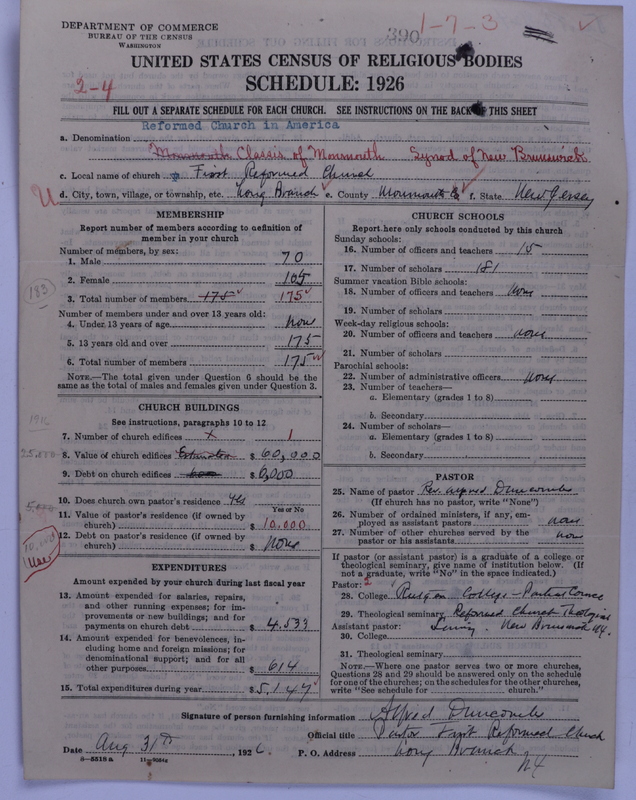 DEPARTMENT OF COMMERCE
BUREAU OF THE CENSUS
WASHINGTON
390
1-7-3
UNITED STATES CENSUS OF RELIGIOUS BODIES
SCHEDULE: 1926
2-4
FILL OUT A SEPARATE SCHEDULE FOR EACH CHURCH. SEE INSTRUCTIONS ON THE BACK OF THIS SHEET
Reformed Church in America
a. Denomination
Monmouth Classis of Monmouth Synod of New Brunswick
c. Local name of church First Reformed Church
d. City, town, village, or township, etc. Long Branch e. County Monmouth Co f. State New Jersey
MEMBERSHIP
Report number of members according to definition of
member in your church
Number of members, by sex:
1. Male 70
2. Female 105
183
3. Total number of members 175 175
Number of members under and over 13 years old:
4. Under 13 years of age none
5. 13 years old and over 175
6. Total number of members 175
NOTE.—The total given under Question 6 should be the
same as the total of males and females given under Question 3.
CHURCH BUILDINGS
See instructions, paragraphs 10 to 12
1916
7. Number of church edifices x 1
25.000
8. Value of church edifices Estimation $ 60,000
9. Debt on church edifices $ 6,000
10. Does church own pastor's residence Yes
Yes or No
5.000
11. Value of pastor's residence (if owned by
church) $ 10,000
12. Debt on pastor's residence (if owned by
church) $ None
EXPENDITURES
Amount expended by your church during last fiscal year
13. Amount expended for salaries, repairs,
and other running expenses; for im-
provements or new buildings; and for
payments on church debt $ 4,533
14. Amount expended for benevolences, in-
cluding home and foreign missions; for
denominational support; and for all
other purposes $ 614
15. Total expenditures during year $ 5,147
CHURCH SCHOOLS
Report here only schools conducted by this church
Sunday schools:
16. Number of officers and teachers 15
17. Number of scholars 181
Summer vacation Bible schools:
18. Number of officers and teachers none
19. Number of scholars
Week-day religious schools:
20. Number of officers and teachers none
21. Number of scholars
Parochial schools:
22. Number of administrative officers none
23. Number of teachers—
a. Elementary (grades 1 to 8)
b. Secondary
24. Number of scholars—
a. Elementary (grades 1 to 8)
b. Secondary
PASTOR
25. Name of pastor Rev. Alfred Duncombe
(If church has no pastor, write "None")
26. Number of ordained ministers, if any, em-
ployed as assistant pastors none
27. Number of other churches served by the
pastor or his assistants none
If pastor (or assistant pastor) is a graduate of a college or
theological seminary, give name of institution below. (If
not a graduate, write "No" in the space indicated.)
Pastor:
28. College College
29. Theological seminary Reformed Church Theological
Assistant pastor: New Brunswick N.J.
30. College
31. Theological seminary
NOTE.—Where one pastor serves two or more churches,
Questions 28 and 29 should be answered only on the schedule
for one of the churches; on the schedules for the other churches,
write "See schedule for church."
Signature of person furnishing information Alfred Duncombe
Official title Pastor First Reformed Church
Date Aug 31th, 1926. P. O. Address Long Branch
NJ
8—5518 a